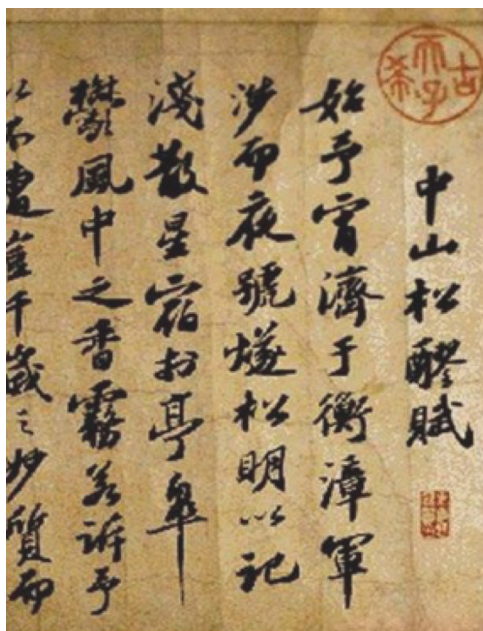 古希天子
中山松醪賦
始予宵濟于衡漳軍
涉而夜號燧松明以記
淺散星宿於亭皋
鬱風中之香霧若訴予
以不遭豈千歲之妙質而